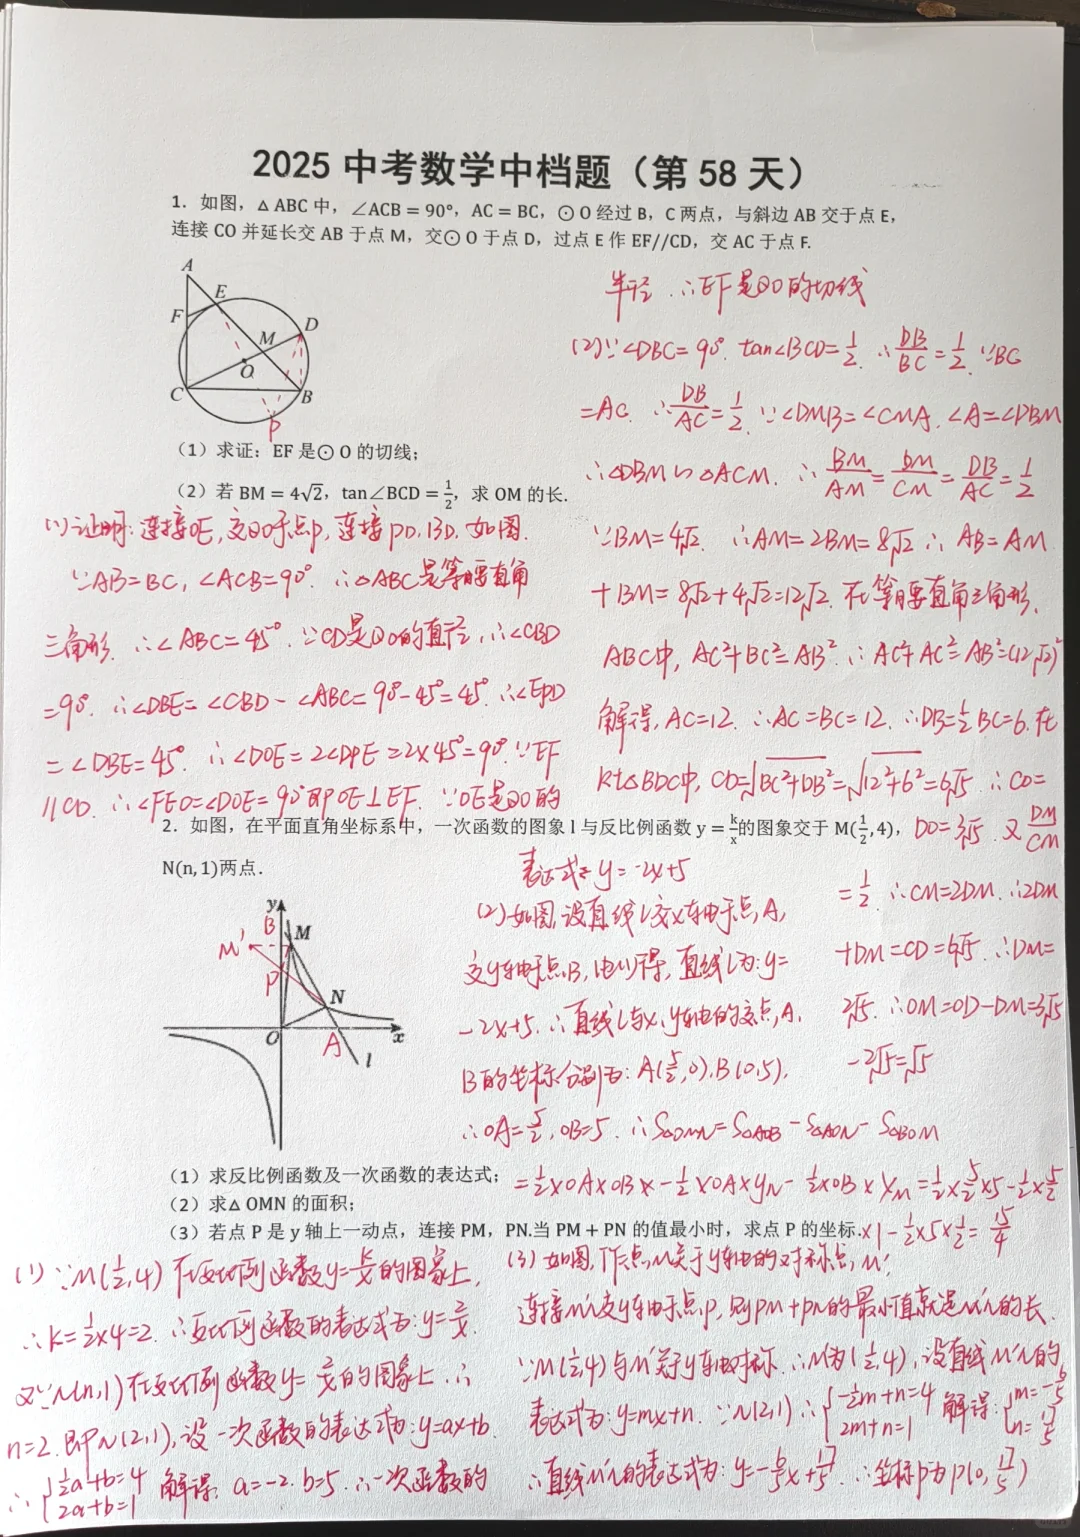 2025 中考数学中档题（第 58 天）
1．如图，△ ABC 中，∠ACB = 90°，AC = BC，⊙ O 经过 B，C 两点，与斜边 AB 交于点 E，
连接 CO 并延长交 AB 于点 M，交⊙ O 于点 D，过点 E 作 EF//CD，交 AC 于点 F.
A
E
F
D
M
O
C
B
P
（1）求证：EF 是⊙ O 的切线；
（2）若 BM = 4√2，tan∠BCD = 1/2，求 OM 的长.
(1)证明：连接OE，交⊙O于点P，连接PD、BD，如图.
∵AB=BC，∠ACB=90°. ∴△ABC是等腰直角
三角形. ∴∠ABC=45°. ∵CD是⊙O的直径，∴∠CBD
=90°. ∴∠DBE=∠CBD-∠ABC=90°-45°=45°. ∴∠EPD
=∠DBE=45°. ∴∠DOE=2∠DPE=2×45°=90°. ∵EF
//CD. ∴∠FEO=∠DOE=90°即OE⊥EF. ∵OE是⊙O的
半径. ∴EF是⊙O的切线
(2)∵∠DBC=90°. tan∠BCD=1/2. ∴DB/BC=1/2. ∵BC
=AC. ∴DB/AC=1/2. ∵∠DMB=∠CMA. ∠A=∠DBM
∴△DBM∽△ACM. ∴BM/AM=DM/CM=DB/AC=1/2
∵BM=4√2. ∴AM=2BM=8√2 ∴AB=AM
+BM=8√2+4√2=12√2. 在等腰直角三角形.
ABC中，AC²+BC²=AB². ∴AC²+AC²=AB²=(12√2)²
解得，AC=12. ∴AC=BC=12. ∴DB=1/2BC=6. 在
Rt△BDC中，CD=√BC²+DB²=√12²+6²=6√5 ∴CD=
DO=3√5. 又DM/CM
=1/2 ∴CM=2DM. ∴2DM
+DM=CD=6√5. ∴DM=
2√5. ∴OM=OD-DM=3√5
-2√5=√5
2．如图，在平面直角坐标系中，一次函数的图象 l 与反比例函数 y = k/x的图象交于 M(1/2, 4)，
N(n, 1)两点.
y
B
M
M'
P
N
O
A
x
l
（1）求反比例函数及一次函数的表达式；
（2）求△ OMN 的面积；
（3）若点 P 是 y 轴上一动点，连接 PM，PN.当 PM + PN 的值最小时，求点 P 的坐标.
(1)∵M(1/2,4)在反比例函数y=k/x的图象上，
∴k=1/2×4=2. ∴反比例函数的表达式为：y=2/x.
又∵N(n,1)在反比例函数y=2/x的图象上. ∴
n=2. 即N(2,1)，设一次函数的表达式为：y=ax+b.
∴{1/2a+b=4 2a+b=1 解得：a=-2. b=5. ∴一次函数的
表达式为y=-2x+5
(2)如图，设直线l交x轴于点A，
交y轴于点B，由(1)得，直线l为：y=
-2x+5. ∴直线l与x、y轴的交点，A、
B的坐标分别为：A(5/2,0)，B(0,5).
∴OA=5/2，OB=5. ∴S△OMN=S△AOB-S△AON-S△BOM
=1/2×OA×OB×-1/2×OA×yN-1/2×OB×xM=1/2×5/2×5-1/2×5/2
×1-1/2×5×1/2=15/4
(3)如图，作点M关于y轴的对称点，M'
连接M'N交y轴于点P，则PM+PN的最小值就是M'N的长.
∵M(1/2,4)与M'关于y轴对称. ∴M'为(-1/2,4)，设直线M'N的
表达式为：y=mx+n. ∵N(2,1) ∴{-1/2m+n=4 2m+n=1 解得：{m=-6/5 n=17/5
∴直线M'N的表达式为：y=-6/5x+17/5. ∴坐标P为P(0,17/5)